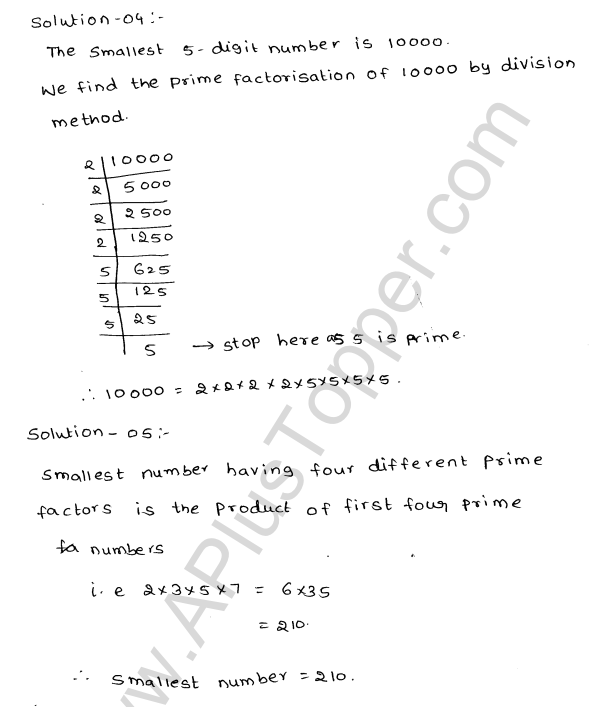 Solution-04:-
The Smallest 5-digit number is 10000.
We find the Prime factorisation of 10000 by division
method.
2 | 10000
2 | 5000
2 | 2500
2 | 1250
5 | 625
5 | 125
5 | 25
| 5 → stop here as 5 is prime.
∴ 10000 = 2×2×2×2×5×5×5×5.
Solution-05:-
Smallest number having four different Prime
factors is the Product of first four prime
fa numbers
i.e 2×3×5×7 = 6×35
= 210.
∴ Smallest number = 210.
www.APlusTopper.com